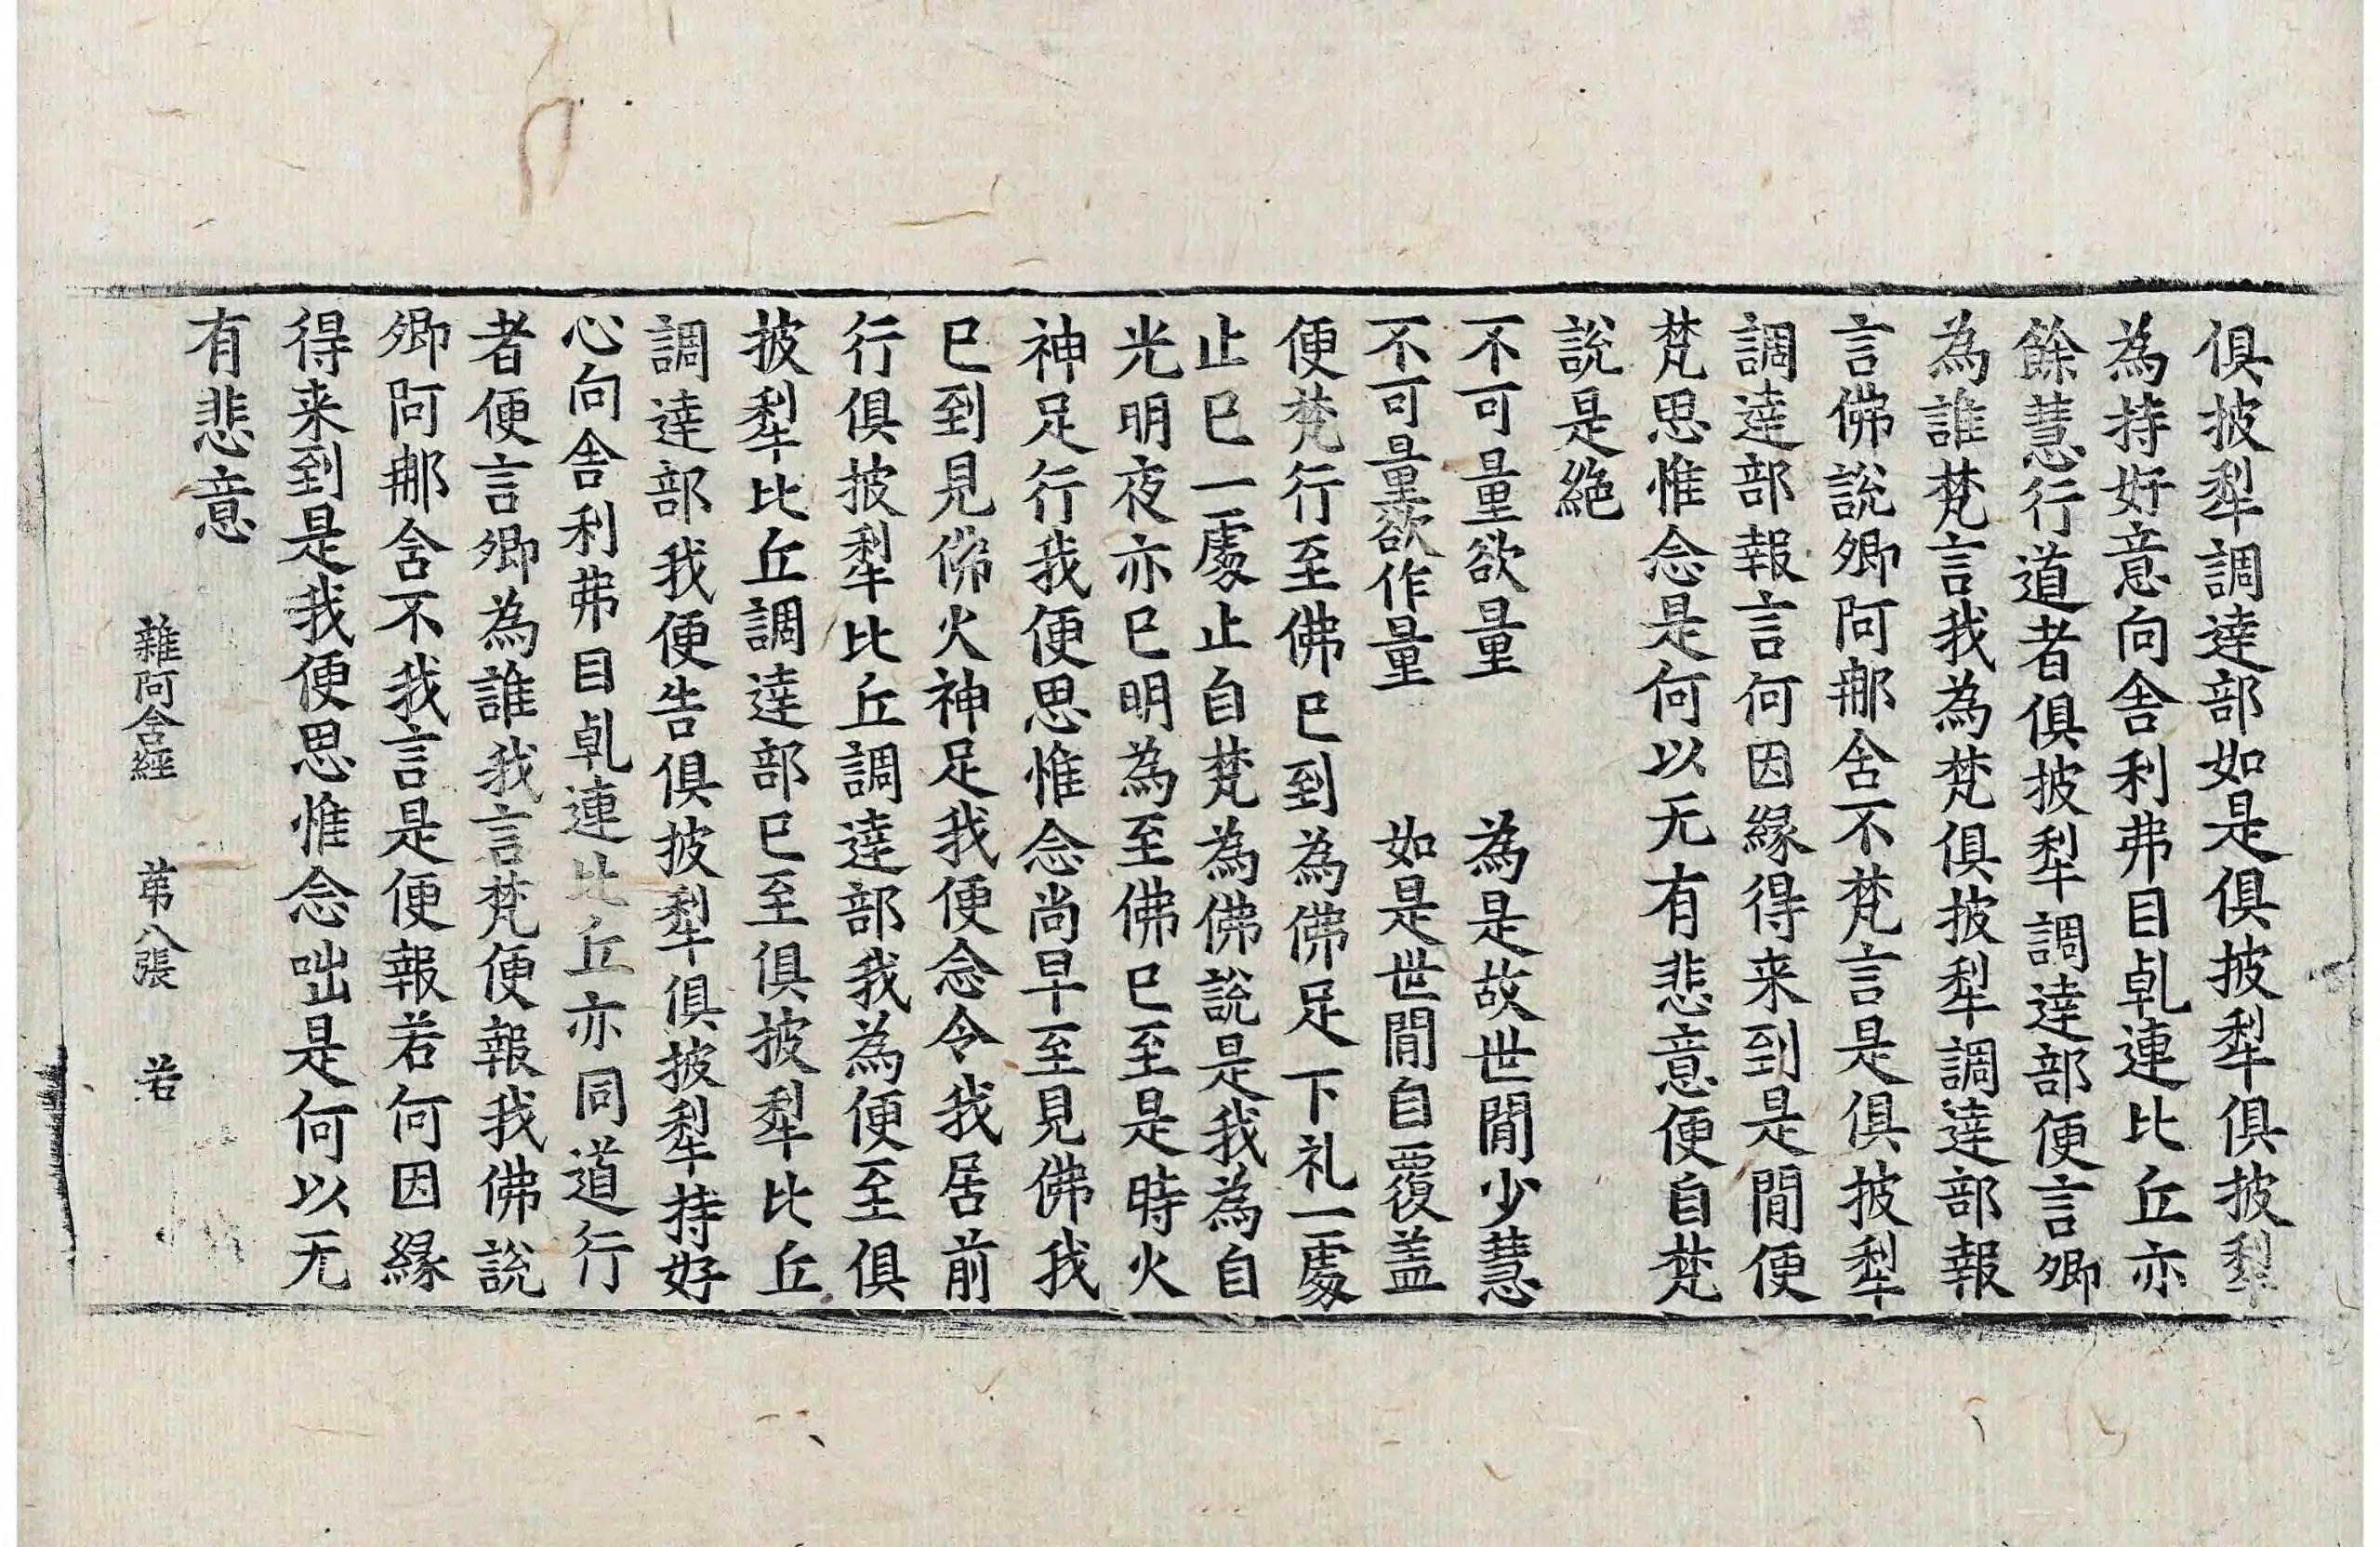 俱披犁調達部如是俱披犁俱披犁
為持好意向舎利弗目乹連比丘亦
餘慧行道者俱披犁調達部便言卿
為誰梵言我為梵俱披犁調達部報
言佛說卿阿𨙻含不梵言是俱披犁
調達部報言何因緣得来到是閒便
梵思惟念是何以无有悲意便自梵
說是絶
不可量欲量　為是故世閒少慧
不可量欲作量　如是世閒自覆盖
便梵行至佛已到為佛足下礼一處
止已一處止自梵為佛說是我為自
光明夜亦已明為至佛已至是時火
神足行我便思惟念尚早至見佛我
已到見佛火神足我便念令我居前
行俱披犁比丘調達部我為便至俱
披犁比丘調達部已至俱披犁比丘
調達部我便告俱披犁俱披犁持好
心向舎利弗目乹連比丘亦同道行
者便言卿為誰我言梵便報我佛說
卿阿𨙻含不我言是便報若何因緣
得来到是我便思惟念咄是何以无
有悲意
雜阿含經　苐八張　若